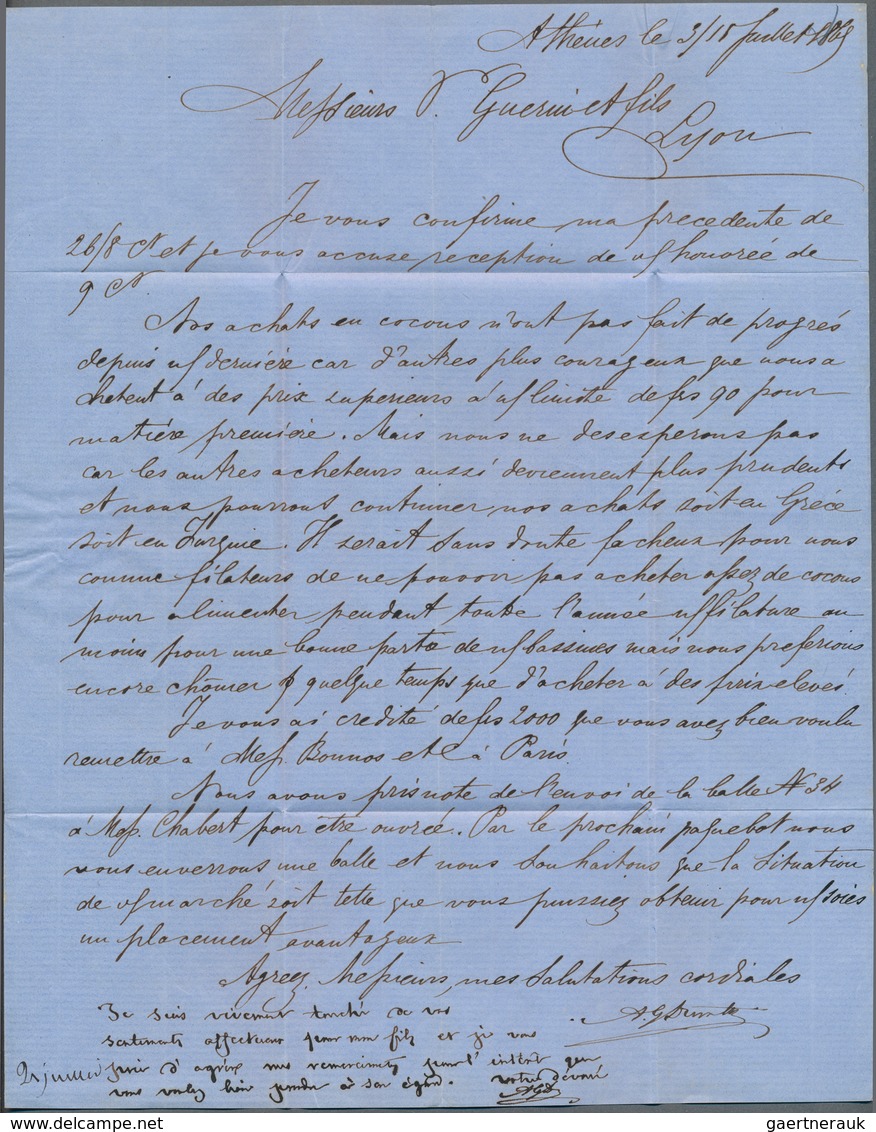 Athènes le 3/15 Juillet 1869
Messieurs V. Guerin et fils
Lyon
Je vous confirme ma precedente de
26/8 Ct et je vous accuse reception de vf honorée de
9 Ct
Nos achats en cocons n'ont pas fait de progrés
depuis nf derniére car d'autres plus courageux que nous a
chetent á des prix superieurs á nf limite de frs 90 pour
matiére premiére. Mais nous ne desesperons pas
car les autres acheteurs aussi deviennent plus prudents
et nous pourrons continuer nos achats soit en Gréce
soit en Turquie. Il serait sans doute facheux pour nous
comme filateurs de ne pouvoir pas acheter assez de cocons
pour alimenter pendant toute l'année nf filature au
moins pour une bonne partie de nf bassines mais nous preferions
encore chômer quelque temps que d'acheter á des prix elevés.
Je vous ai credité de frs 2000 que vous avez bien voulu
remettre á Mess. Bonnos et C á Paris.
Nous avons pris note de l'envoi de la balle N 34
á Mess. Chabert pour être ouvrée. Par le prochain paquebot nous
vous enverrons une balle et nous souhaitons que la situation
de vf marché soit telle que vous puissiez obtenir pour nf soies
un placement avantageux
Agreez, Messieurs, mes salutations cordiales
Je suis vivement touché de vos
sentiments affectueux pour mon fils et je vous
prie d'agréer mes remerciments pour l'intérêt que
vous voulez bien prendre à son égard. votre dévoué
AGD
21 juillet
gaertnerauk @ delcampe.net